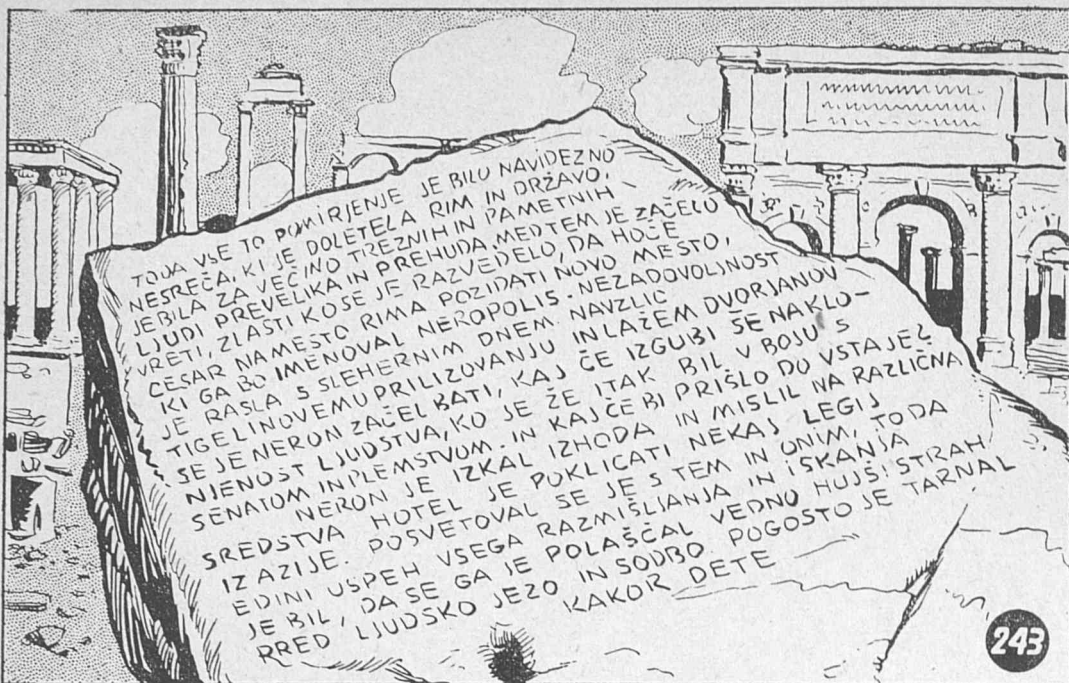 TODA VSE TO POMIRJENJE JE BILO NAVIDEZNO
NESREČA, KI JE DOLETELA RIM IN DRŽAVO,
JE BILA ZA VEČINO TREZNIH IN PAMETNIH
LJUDI PREVELIKA IN PREHUDA. MEDTEM JE ZAČELO
VRETI, ZLASTI KO SE JE RAZVEDELO, DA HOČE
CESAR NAMESTO RIMA POZIDATI NOVO MESTO,
KI GA BO IMENOVAL NEROPOLIS. NEZADOVOLJNOST
JE RASLA S SLEHERNIM DNEM. NAVZLIC
TIGELINOVEMU PRILIZOVANJU IN LAŽEM DVORJANOV
SE JE NERON ZAČEL BATI, KAJ ČE IZGUBI ŠE NAKLO-
NJENOST LJUDSTVA, KO JE ŽE ITAK BIL V BOJU S
SENATOM IN PLEMSTVOM. IN KAJ ČE BI PRIŠLO DO VSTAJE?
NERON JE IZKAL IZHODA IN MISLIL NA RAZLIČNA
SREDSTVA HOTEL JE POKLICATI NEKAJ LEGIJ
IZ AZIJE. POSVETOVAL SE JE S TEM IN ONIM, TODA
EDINI USPEH VSEGA RAZMIŠLJANJA IN ISKANJA
JE BIL, DA SE GA JE POLAŠČAL VEDNO HUJŠI STRAH
RRED LJUDSKO JEZO IN SODBO. POGOSTO JE TARNAL
KAKOR DETE
243